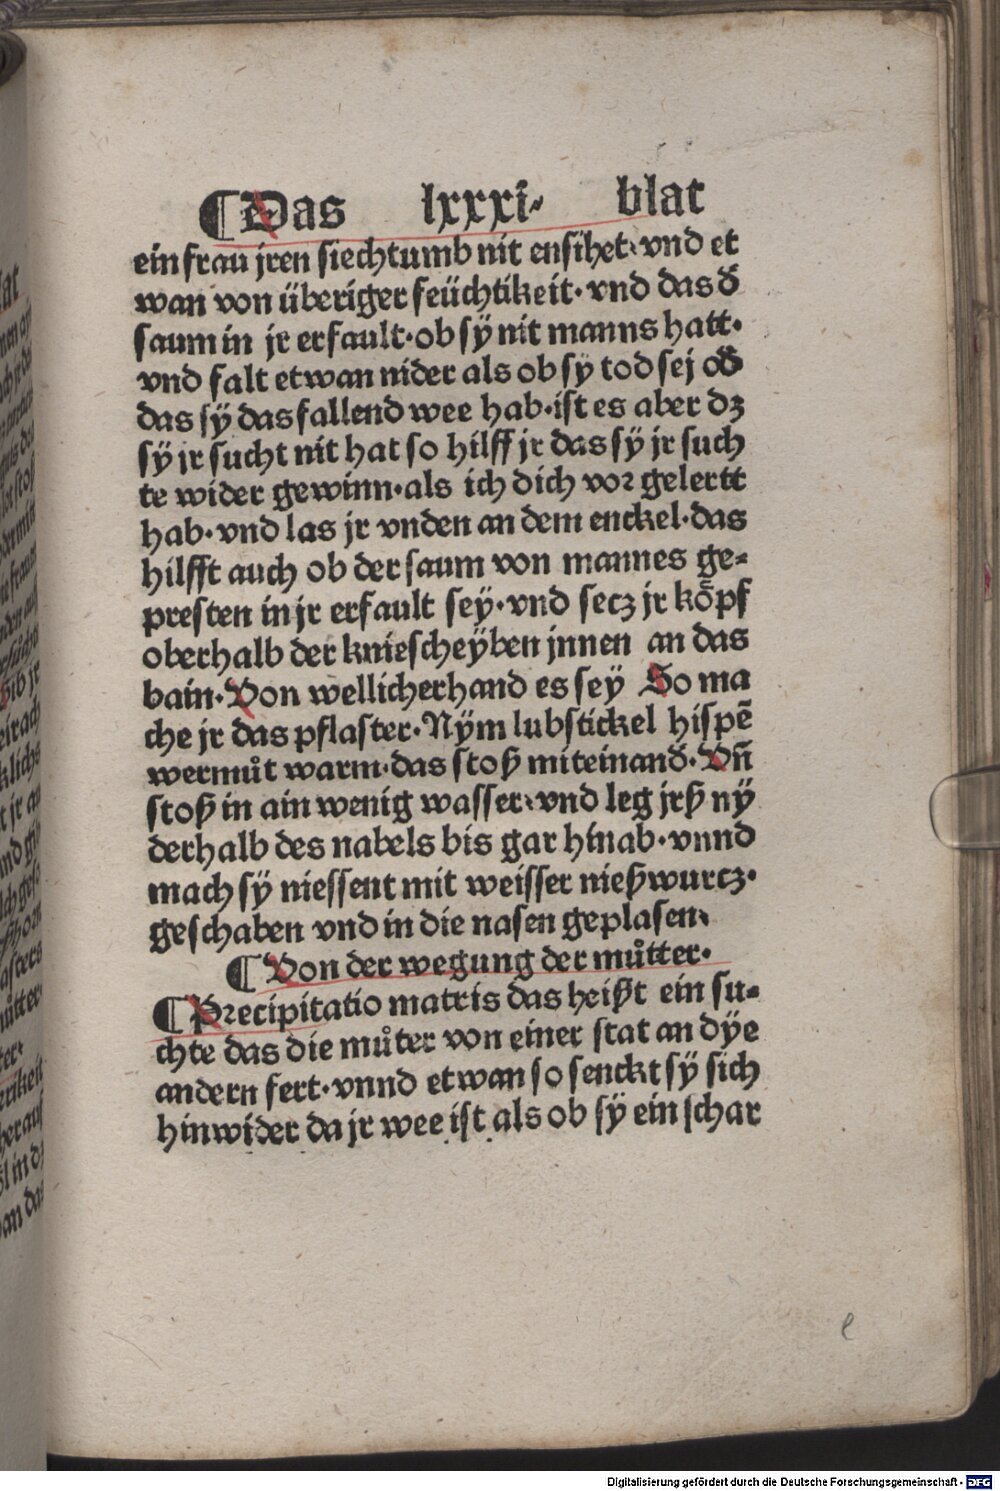 ¶Das lxxxi· blat
ein frau jren siechtumb nit ensihet· vnd et
wan von überiger feüchtikeit· vnd das đ
saum in jr erfault· ob sÿ nit manns hatt·
vnd falt etwan nider als ob sy tod sej ođ
das sÿ das fallend wee hab· ist es aber dz
sÿ jr sucht nit hat so hilff jr das sÿ jr such
te wider gewinn· als ich dich vor gelertt
hab· vnd las jr vnden an dem enckel· das
hilfft auch ob der saum von mannes ge⸗
presten in jr erfault sey· vnd secz jr köpf
oberhalb der kniescheÿben jnnen an das
bain· Von wellicherhand es seÿ So ma
che jr das pflaster· Nÿm lubstickel hispē
wermůt warm· das stoß miteinand̛· Vn̄
stoß in ain wenig wasser· vnd leg jrß nÿ
derhalb des nabels bis gar hinab· vnnd
mach sÿ niessent mit weisser nießwurcz·
geschaben vnd in die nasen geplasen·
¶ Von der wegung der můtter·
¶ Precipitatio matris das heißt ein su⸗
chte das die můter von einer stat an dÿe
andern fert· vnnd etwan so senckt sÿ sich
hinwider da jr wee ist als ob sÿ ein schar
e
Digitalisierung gefördert durch die Deutsche Forschungsgemeinschaft · DFG